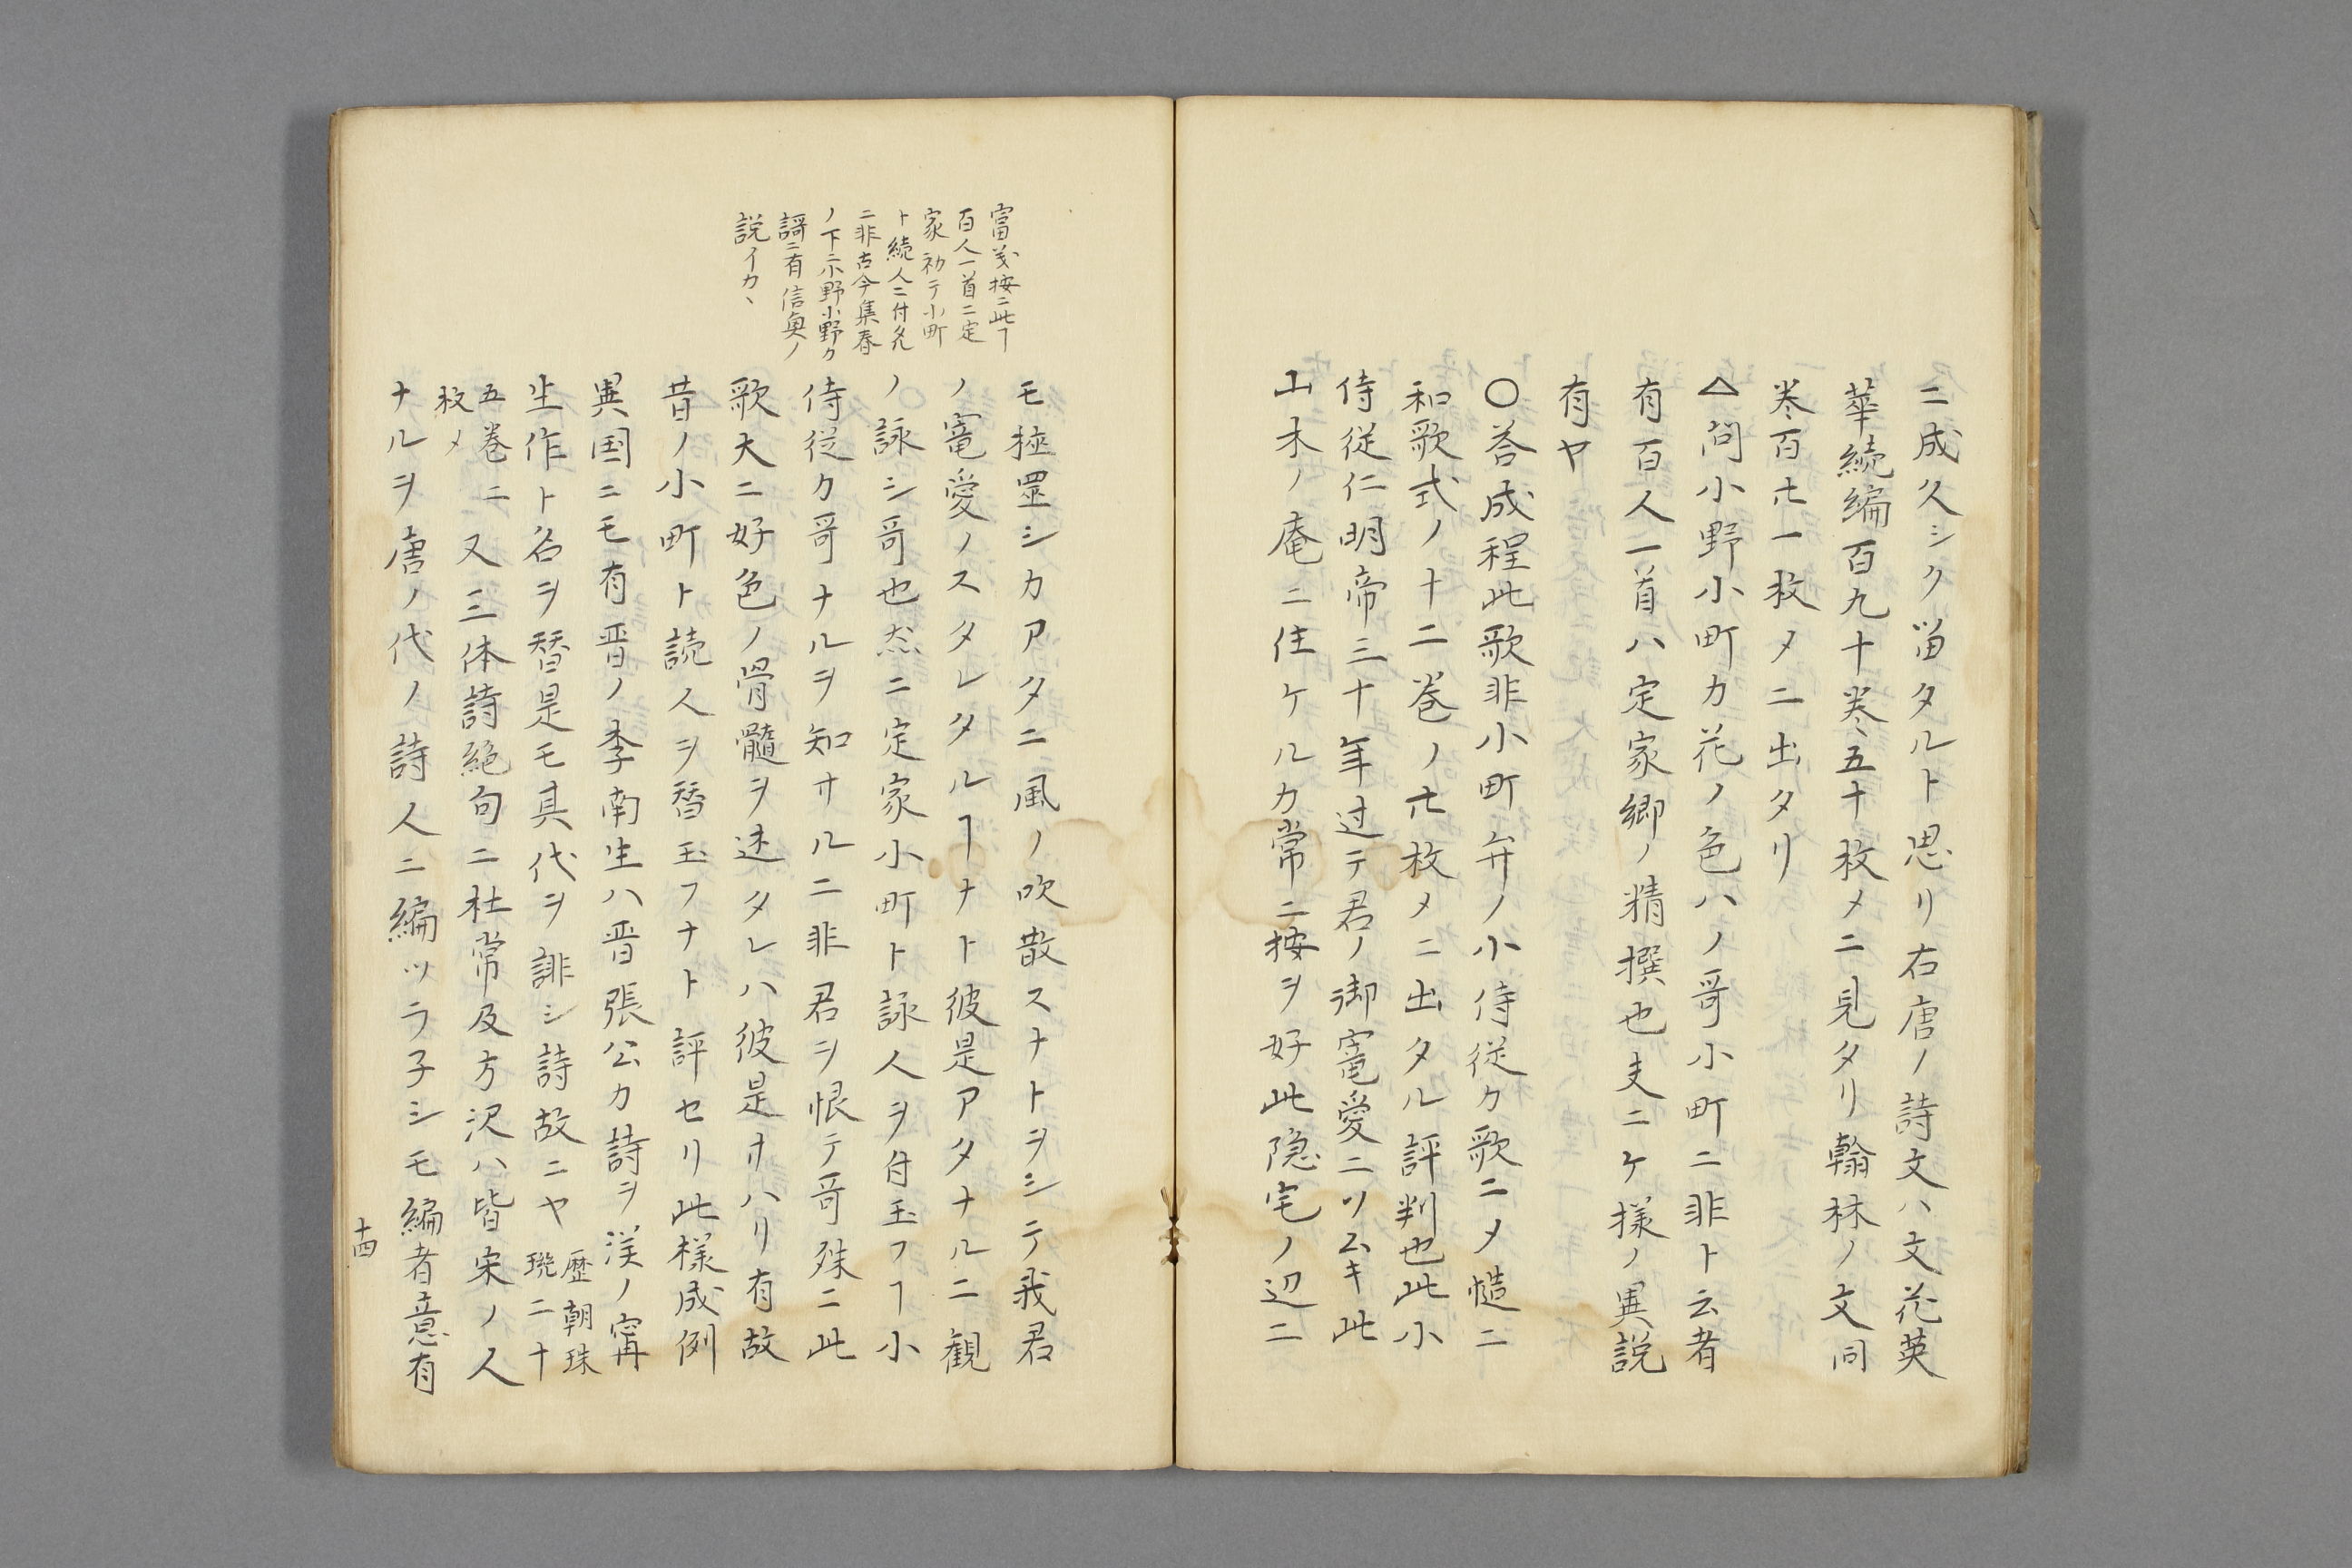 ニ成久シク畄タルト思リ右唐ノ詩文ハ文花英
華続編百九十巻五十枚メニ見タリ翰林ノ文同
巻百廿一枚メニ出タリ
△問小野小町カ花ノ色ハノ哥小町ニ非ト云者
有百人一首ハ定家卿ノ精撰也夫ニケ様ノ異説
有ヤ
○答成程此歌非小町弁ノ小侍従カ歌ニメ慥ニ
和歌式ノ十二巻ノ廿枚メニ出タル評判也此小
侍従仁明帝三十年过テ君ノ御寵愛ニツムキ此
山木ノ庵ニ住ケルカ常ニ按ヲ好此隠宅ノ辺ニ
モ植置シカアタニ風ノ吹散スナトヲシテ我君
ノ寵愛ノスタレタルヿナト彼是アタナルニ観
ノ詠シ哥也然ニ定家小町ト詠人ヲ付玉フヿ小
侍従カ哥ナルヲ知サルニ非君ヲ恨テ哥殊ニ此
歌大ニ好色ノ骨髄ヲ述タレハ彼是サハリ有故
昔ノ小町ト読人ヲ替玉フナト評セリ此様成例
異国ニモ有晋ノ李南生ハ晋張公カ詩ヲ渓ノ寗
生作ト名ヲ替是モ其代ヲ誹シ詩故ニヤ歴朝珠
琁二十
五巻ニ
枚メ又三体詩絶句ニ杜常及方沢ハ皆宋ノ人
ナルヲ唐ノ代ノ詩人ニ編ツラ子シモ編者意有
富義按ニ此ヿ
百人一首ニ定
家初テ小町
ト続人ニ付
ニ非古今集春
ノ下ニ小野小野カ
謌ニ有信奥ノ
説イカヽ
十四